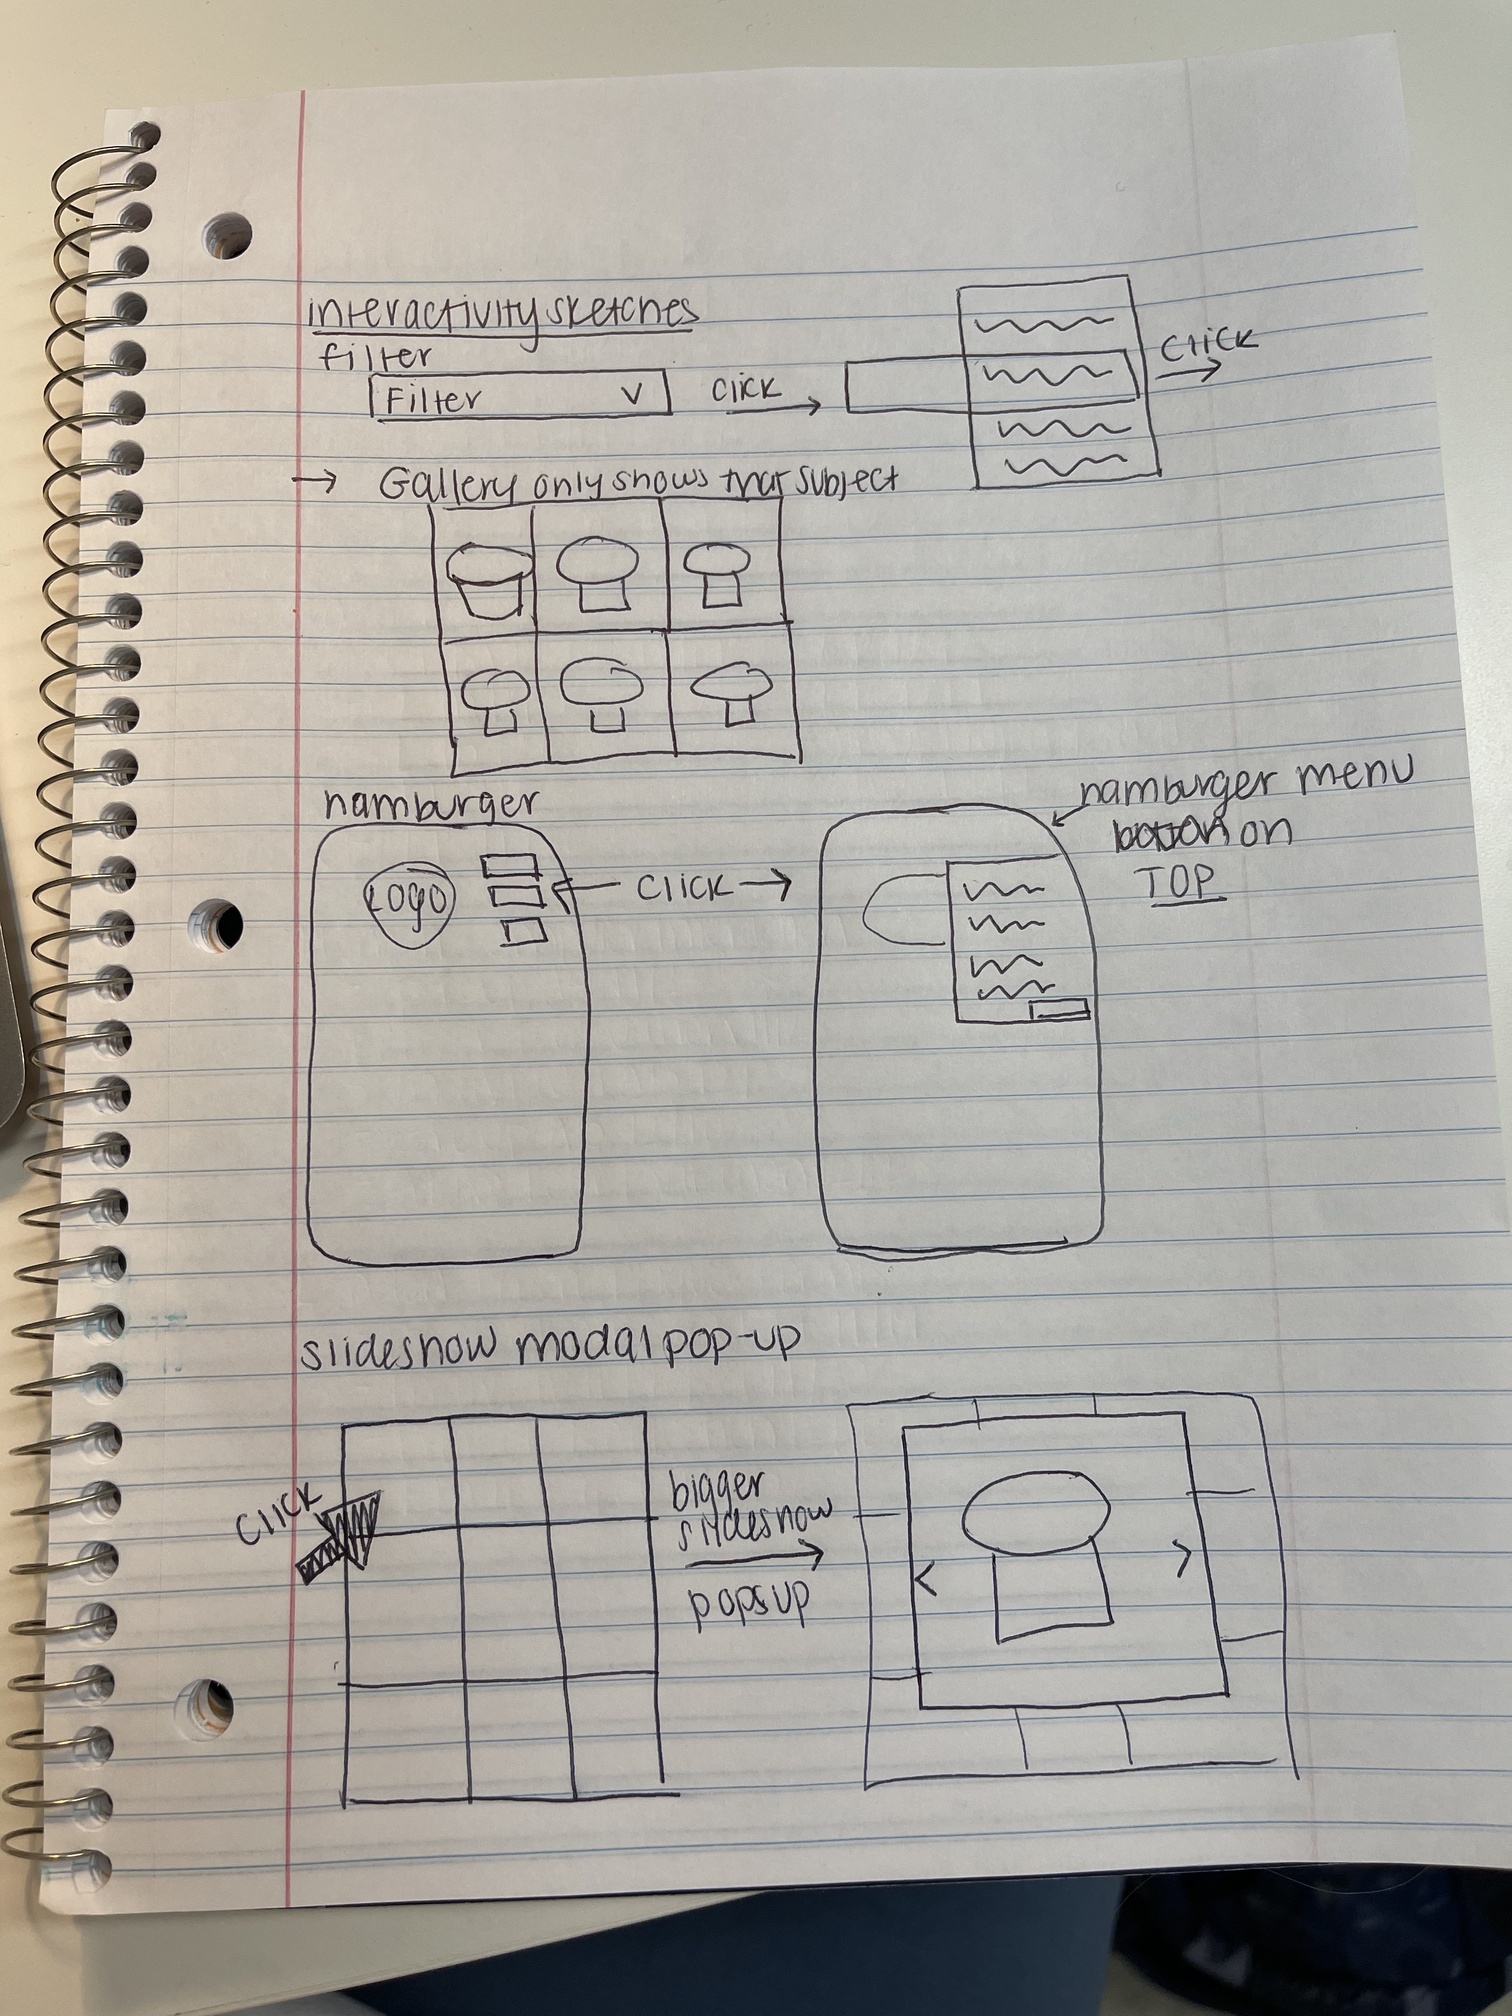 interactivity sketches
filter
Filter V
click
click
→ Gallery only shows that subject
hamburger
Logo
click
hamburger menu
on
TOP
slideshow modal pop-up
click
bigger
slideshow
pops up
< >